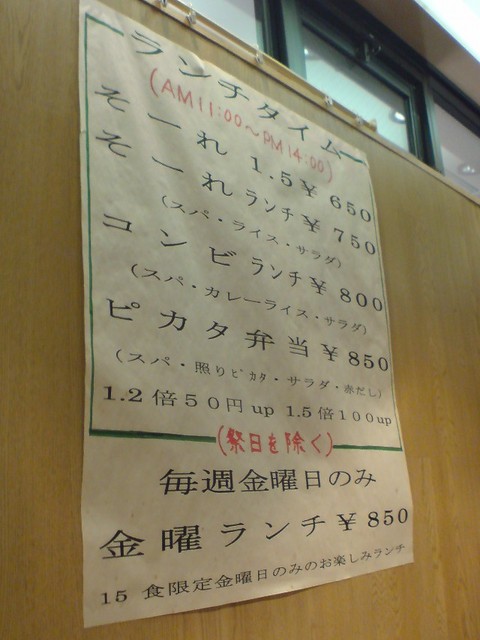 ランチタイム
(AM11:00〜PM14:00)
そーれ 1.5¥ 650
そーれランチ¥ 750
(スパ・ライス・サラダ)
コンビランチ¥ 800
(スパ・カレーライス・サラダ)
ピカタ弁当¥850
(スパ・照りピカタ・サラダ・赤だし)
1.2倍50円up 1.5倍100up
(祭日を除く)
毎週金曜日のみ
金曜ランチ¥850
15 食限定金曜日のみのお楽しみランチ